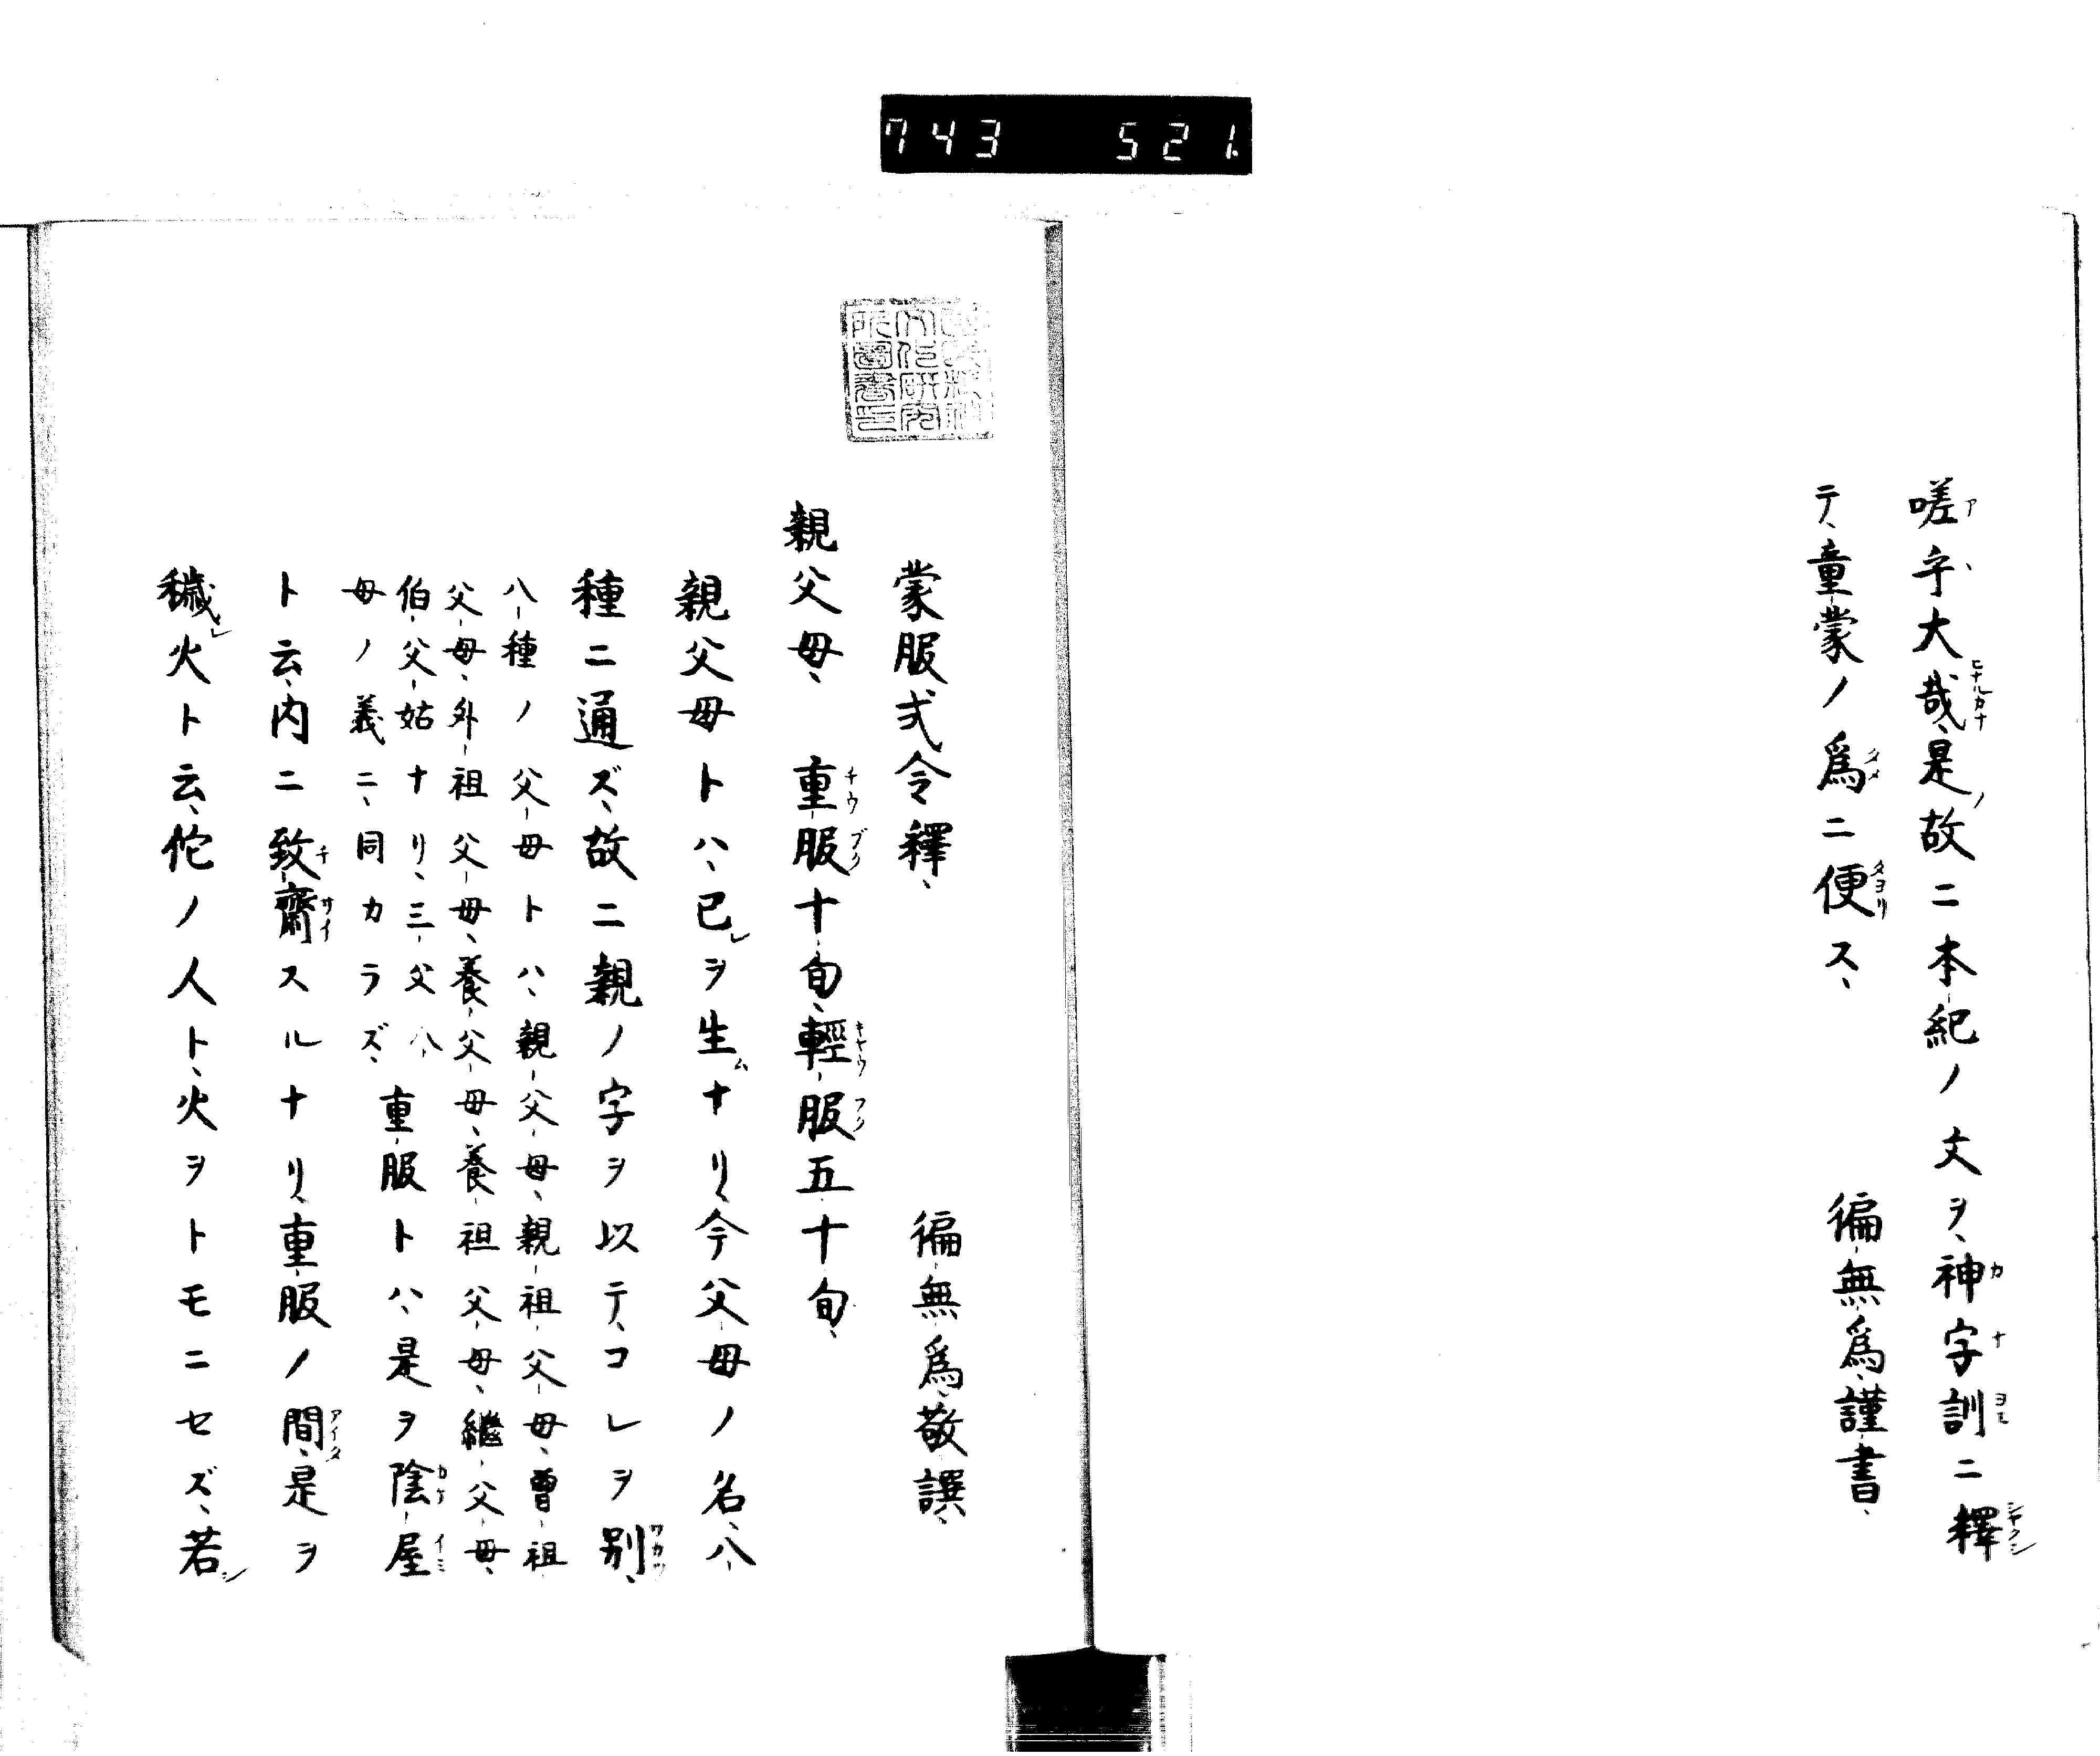 743 521
嗟乎大哉、是故ニ本紀ノ文ヲ、神字訓ニ釋
テ、童蒙ノ爲ニ便ス、
徧無爲、謹書、
蒙服式令釋、
徧無爲、敬譔、
親父母、重服十旬、輕服五十旬、
親父母トハ、已レヲ生ムナリ、今父母ノ名、八
種ニ通ズ、故ニ親ノ字ヲ以テ、コレヲ別、
八種ノ父母トハ、親父母、親祖父母、曽祖
父母、外祖父母、養父母、養祖父母、繼父母、
伯父姑ナリ、三父八
母ノ義ニ、同カラズ、
重服トハ、是ヲ陰屋
ト云、内ニ致齋スルナリ、重服ノ間、是ヲ
穢レ火ト云、佗ノ人ト、火ヲトモニセズ、若シ